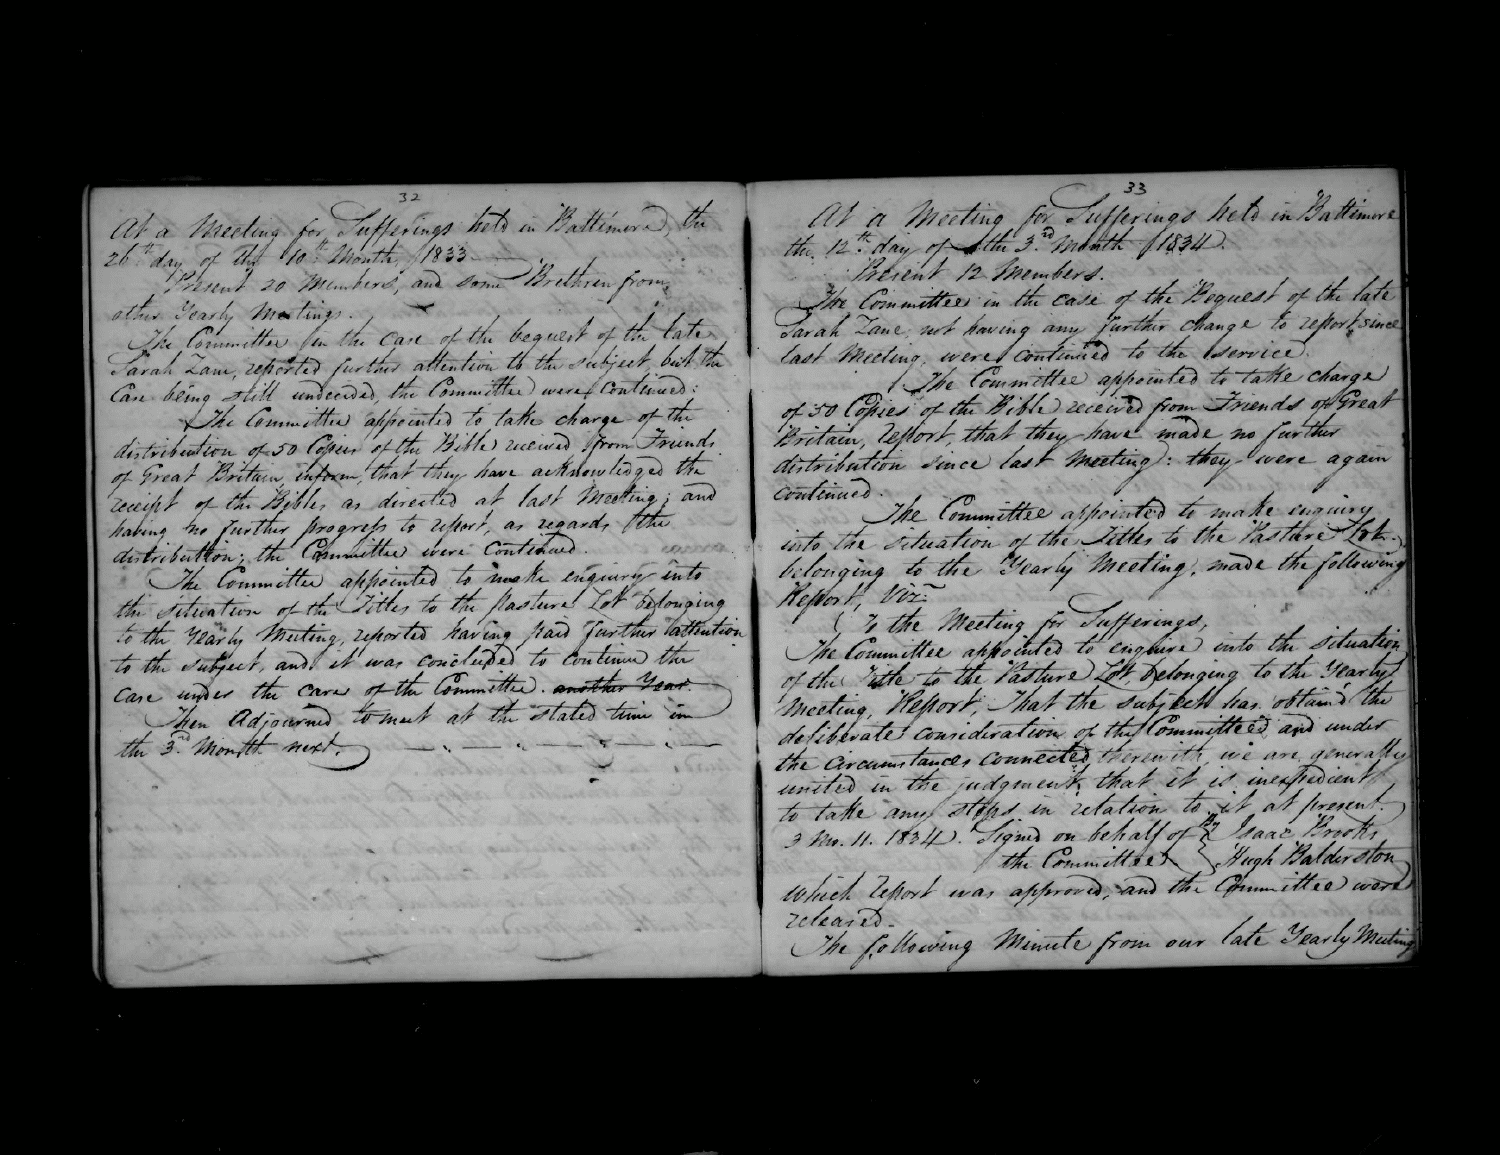 32
At a Meeting for Sufferings held in Baltimore, the
26th day of the 10th Month, 1833
Present 20 Members, and some Brethren from
other Yearly Meetings.
The Committee in the case of the bequest of the late
Sarah Zane, reported further attention to the subject, but the
Case being still undecided, the Committee were continued:
The Committee appointed to take charge of the
distribution of 50 Copies of the Bible received from Friends
of Great Britain, inform, that they have acknowledged the
receipt of the Bibles as directed at last Meeting; and
having no further progress to report, as regards the
distribution; the Committee were continued.
The Committee appointed to make enquiry into
the situation of the Titles to the pasture Lot belonging
to the Yearly Meeting, reported having paid further attention
to the subject, and it was concluded to continue the
case under the care of the Committee. another Year.
Then Adjourned to meet at the stated time in
the 3rd Month next.
33
At a Meeting for Sufferings held in Baltimore
the 12th day of the 3rd Month 1834.
Present 12 Members.
The Committee in the case of the Bequest of the late
Sarah Zane, not having any further change to report, since
last Meeting, were continued to the service.
The Committee appointed to take charge
of 50 Copies of the Bible received from Friends of Great
Britain, report, that they have made no further
distribution since last Meeting: they were again
continued.
The Committee appointed to make enquiry
into the situation of the Titles to the Pasture Lot
belonging to the Yearly Meeting, made the following
Report, Viz:
To the Meeting for Sufferings,
The Committee appointed to enquire into the situation
of the Title to the Pasture Lot belonging to the Yearly
Meeting, Report, That the subject has obtain'd the
deliberate consideration of the Committee, and under
the circumstances connected therewith, we are generally
united in the judgment, that it is inexpedient
to take any steps in relation to it at present.
3 Mo. 11. 1834. Signed on behalf of by Isaac Brooks
the Committee Hugh Balderston
which report was approved, and the Committee were
released.
The following Minute from our late Yearly Meeting